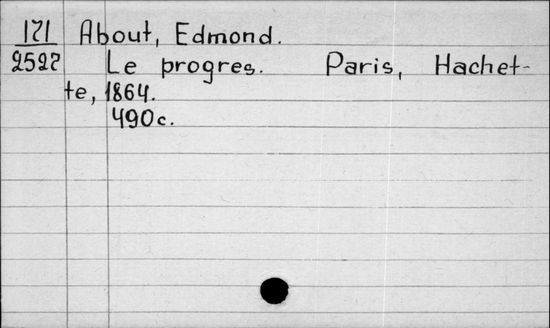 171 About, Edmond.
2527 Le progres. Paris, Hachet-
te, 1864.
490c.